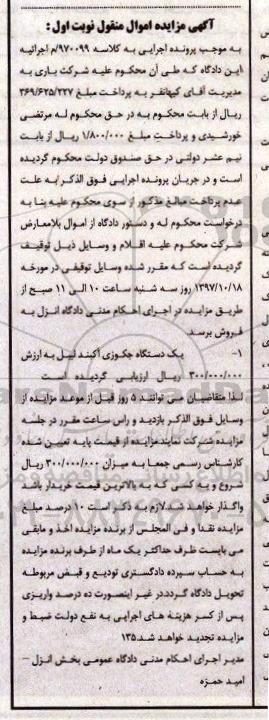 آگهی مزایده اموال منقول نوبت اول :
به موجب پرونده اجرایی به کلاسه ۹۷۰۰۹۹/م اجرائیه
این دادگاه که طی آن محکوم علیه شرکت یاری به
مدیریت آقای کیهانفر به پرداخت مبلغ ۳۶۹/۶۲۵/۲۲۷
ریال از بابت محکوم به در حق محکوم له مرتضی
خورشیدی و پرداخت مبلغ ۱/۸۰۰/۰۰۰ ریال از بابت
نیم عشر دولتی در حق صندوق دولت محکوم گردیده
است و در جریان پرونده اجرایی فوق الذکر /به علت
عدم پرداخت مبالغ مذکور از سوی محکوم علیه بنا به
درخواست محکوم له و دستور دادگاه از اموال بلامعارض
شرکت محکوم علیه اقلام و وسایل ذیل توقیف
گردیده است که مقرر شده وسایل توقیفی در مورخه
۱۳۹۷/۱۰/۱۸ روز سه شنبه ساعت ۱۰ الی ۱۱ صبح از
طریق مزایده در اجرای احکام مدنی دادگاه انزل به
فروش برسد.
۱- یک دستگاه جکوزی آکبند لیبل به ارزش
۳۰۰/۰۰۰/۰۰۰ ریال ارزیابی گردیده است
لذا متقاضیان می توانند ۵ روز قبل از موعد مزایده از
وسایل فوق الذکر بازدید و راس ساعت مقرر در جلسه
مزایده شرکت نمایند.مزایده از قیمت پایه تعیین شده
کارشناس رسمی جمعا به میزان ۳۰۰/۰۰۰/۰۰۰ ریال
شروع و به کسی که به بالاترین قیمت خریدار باشد
واگذار خواهد شد.لازم به ذکر است ۱۰ درصد مبلغ
مزایده نقدا و فی المجلس از برنده مزایده اخذ و مابقی
می بایست ظرف حداکثر یک ماه از طرف برنده مزایده
به حساب سپرده دادگستری تودیع و قبض مربوطه
تحویل دادگاه گردد.در غیر اینصورت ده درصد واریزی
پس از کسر هزینه های اجرایی به نفع دولت ضبط و
مزایده تجدید خواهد شد.۱۳۵
مدیر اجرای احکام مدنی دادگاه عمومی بخش انزل –
امید حمزه